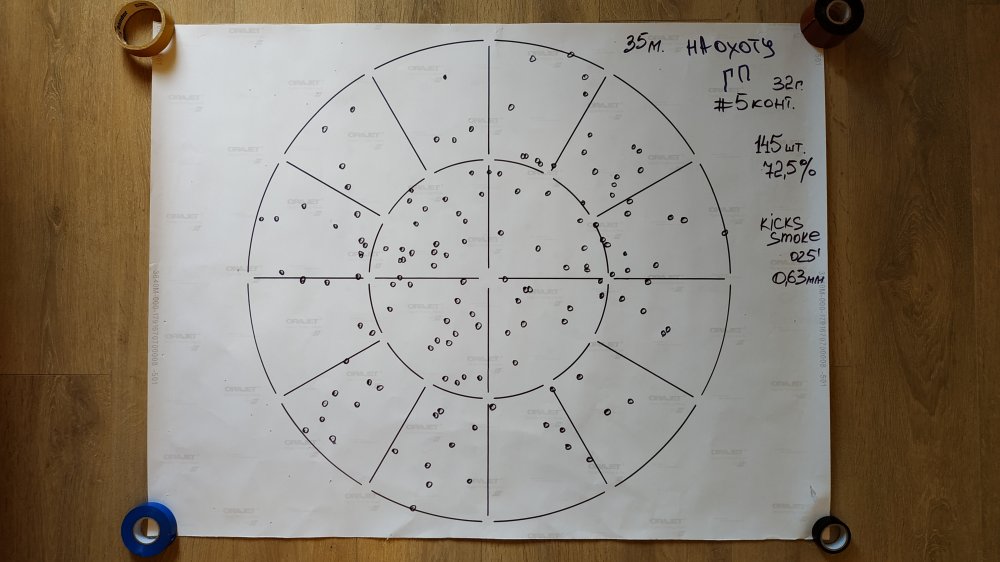 35м. НА ОХОТУ
ГП 32г.
#5 конт.
145 шт.
72,5%
KICKS
SMOKE
025'
0,63мм
ORAJET